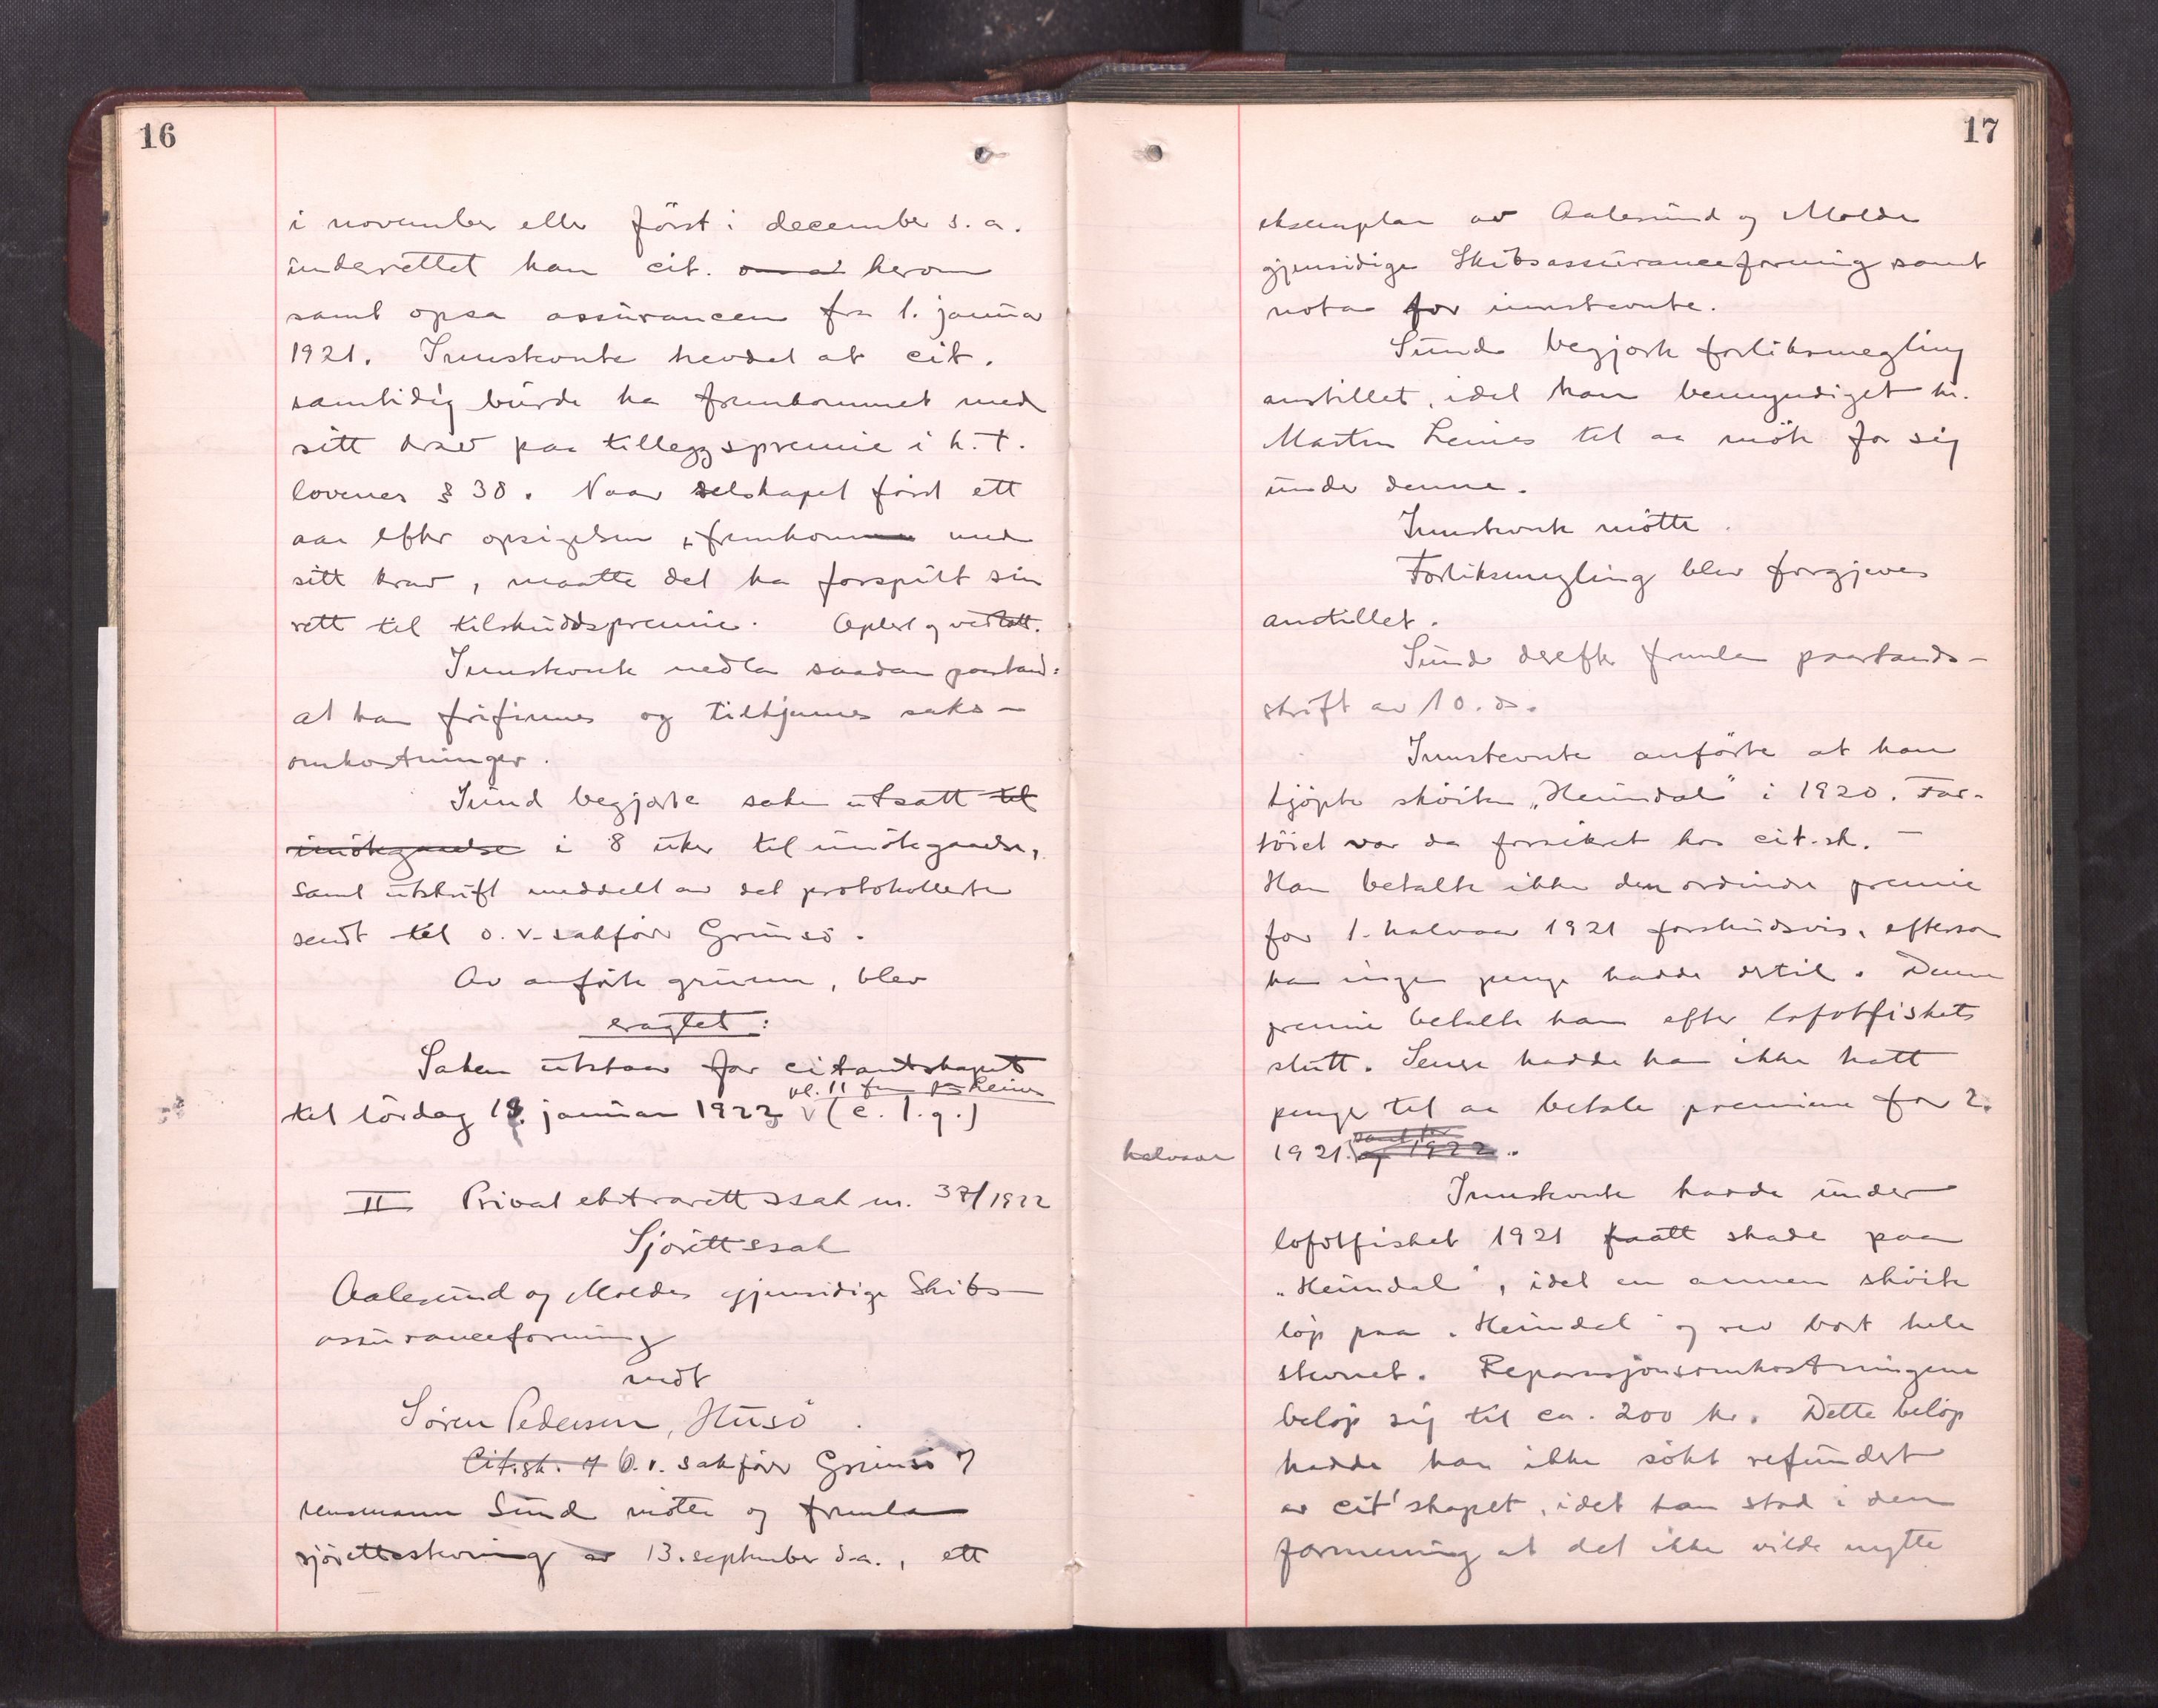 16
i november eller först i december s. a.
underrettet han cit. om at herom
samt opsa assurancen fra 1. januar
1921. Innstevnte hevdet at cit.
samtidig burde ha fremkommet med
sitt krav paa tilleggspremie i h. t.
lovenes § 38. Naar selskapet först ett
aar efter opsigelsen fremkommer med
sitt krav, maatte det ha forspilt sin
rett til tilskuddspremie. Oplest og vedtatt.
Innstevnte nedla saadan paastand:
at han frifinnes og tilkjennes saks-
omkostninger.
Sund begjærte saken utsatt til
imötegaaelse i 8 uker til imötegaaelse,
samt utskrift meddelt av det protokollerte
sendt til o. r. sakförer Grimsö.
Av anförte grunn, blev
eragtet:
Saken utstaar for citantskapet
kl. 11 fm paa Leines
til lördag 13. januar 1923 (c. l. q.)
II Privat ekstrarettssak nr. 37/1922
Sjörettssak
Aalesund og Moldes gjensidige Skibs-
assuranceforening
mot
Sören Pedersen, Husö.
Cit.sk. v/ O.r. sakförer Grimsö v/
lensmann Sund mötte og fremla
sjörettsstevning av 13. september d.a., ett
17
eksemplar av Aalesund og Moldes
gjensidige Skibsassuranceforening samt
nota for innstevnte.
Sund begjærte forliksmegling
anstillet, idet han bemyndiget hr.
Martin Leines til aa möte for sig
under denne.
Innstevnte mötte.
Forliksmegling blev forgjeves
anstillet.
Sund derefter fremla paastands-
skrift av 10. ds.
Innstevnte anförte at han
kjöpte sköiten "Heimdal" i 1920. Far-
töiet var da forsikret hos cit.sk. -
Han betalte ikke den ordinære premie
for 1. halvaar 1921 forskudsvis, eftersom
han ingen penge hadde dertil. Denne
premie betalte han efter lofotfiskets
slutt. Senere hadde han ikke hatt
penger til aa betale premien for 2.
halvaar 1921. samt for og 1922.
Innstevnte hadde under
lofotfisket 1921 faatt skade paa
"Heimdal", idet en annen sköite
löp paa "Heimdal" og rev bort hele
stevnet. Reparasjonsomkostningene
belöp sig til ca. 200 kr. Dette belöp
hadde han ikke sökt refundert
av cit'skapet, idet han stod i den
formening at det ikke vilde nytte